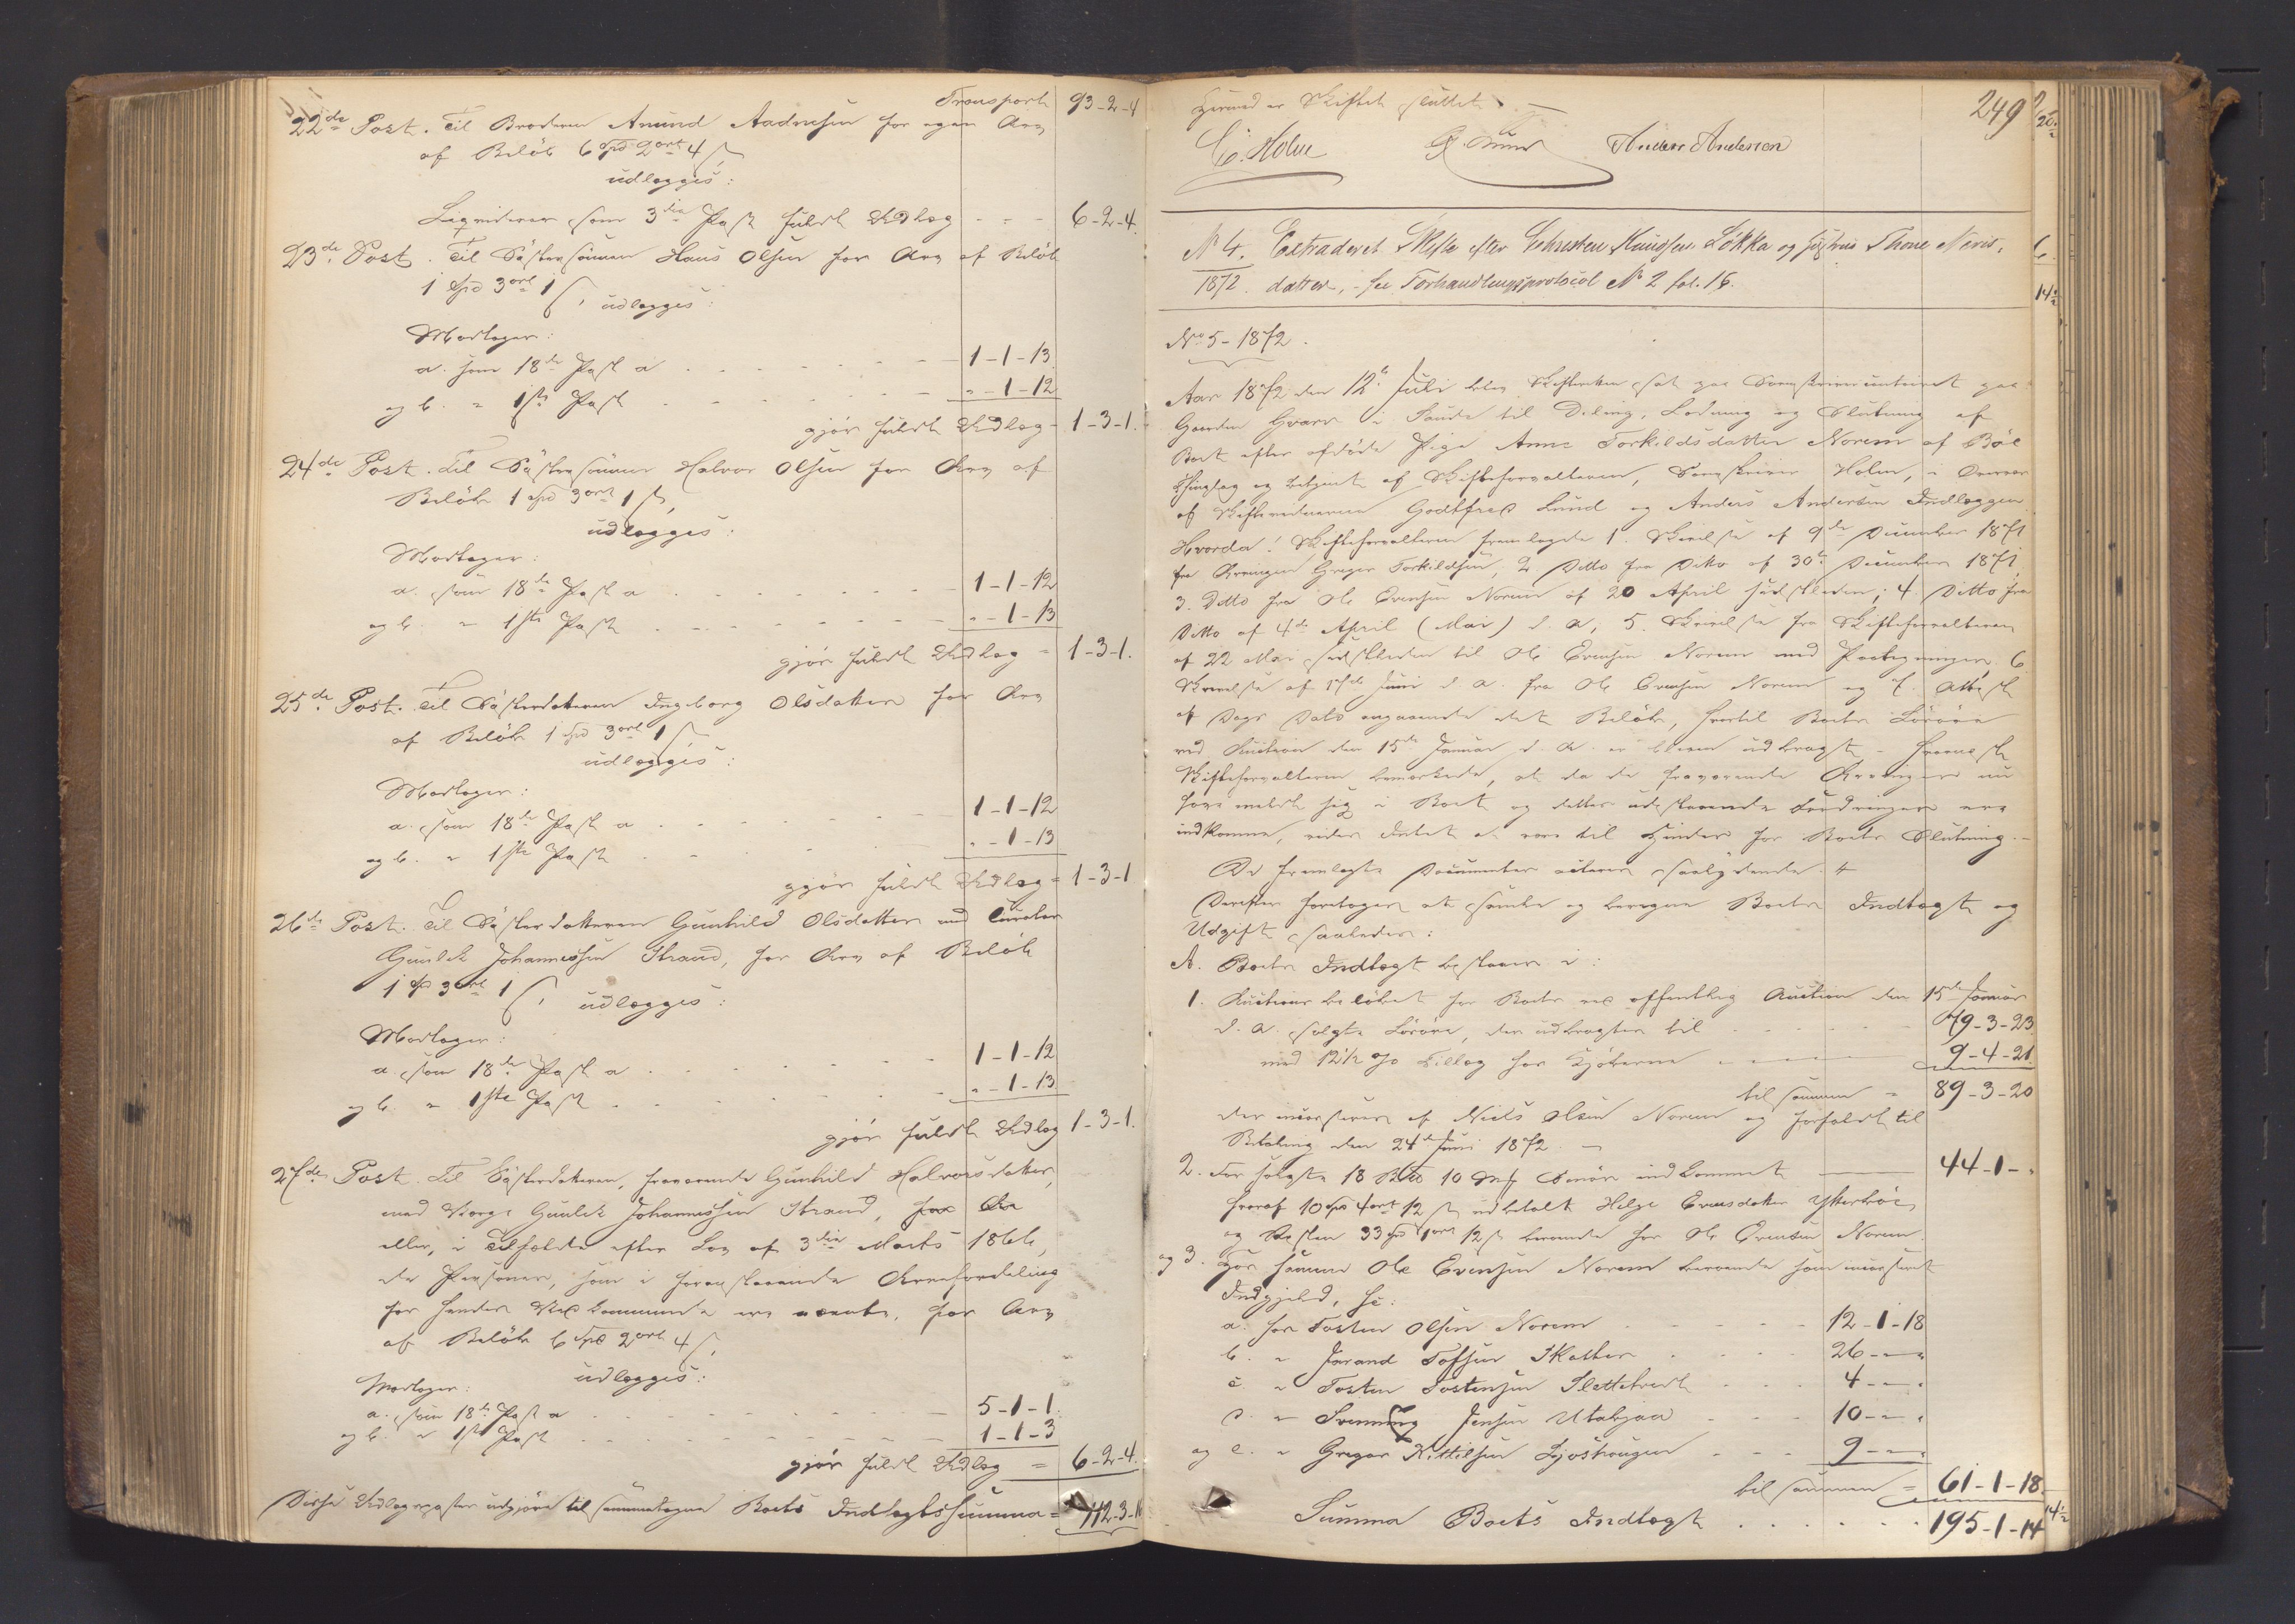 Transport 93-2-4
22de Post. Til Broderen Amund Aadnesen for egen Arv
af Beløb 6 Spd 2 ort 4 ß,
udlægges:
Liqviderer som 3die Post fuldt Udlæg - - - 6-2-4.
23de Post. Til Søstersønnen Hans Olsen for Arv af Beløb
1 Spd 3 ort 1 ß, udlægges:
Modtager:
a. som 18de Post a - - - 1-1-13
og b. " 1ste Post - - - "-1-12
gjør fuldt Udlæg = 1-3-1.
24de Post. Til Søstersønnen Halvor Olsen for Arv af
Beløb 1 Spd 3 ort 1 ß,
udlægges:
Modtager:
a. som 18de Post a - - - 1-1-12
og b. " 1ste Post - - - "-1-13
gjør fuldt Udlæg = 1-3-1.
25de Post. Til Søsterdatteren Ingeborg Olsdatter for Arv
af Beløb 1 Spd 3 ort 1 ß,
udlægges:
Modtager:
a. som 18de Post a - - - 1-1-12
og b. " 1ste Post - - - "-1-13
gjør fuldt Udlæg = 1-3-1
26de Post. Til Søsterdatteren Gunhild Olsdatter med Curator
Gunlek Johannessen Strand, for Arv af Beløb
1 Spd 3 ort 1 ß, udlægges:
Modtager:
a. som 18de Post a - - - 1-1-12
og b. " 1ste Post - - - "-1-13
gjør fuldt Udlæg 1-3-1.
27de Post. Til Søsterdatteren, fraværende Gunhild Halvorsdatter,
med Værge Gunlek Johannessen Strand, for Arv
eller, i Tilfælde efter Lov af 3die Marts 1866,
de Personer, som i foranstaaende Arvefordeling
for hendes Vedkommende ere nævnte, for Arv
af Beløb 6 Spd 2 ort 4 ß,
udlægges:
Modtager:
a. som 18de Post a - - - 5-1-1.
og b. " 1ste Post - - - 1-1-3
gjør fuldt Udlæg = 6-2-4.
Disse Udlægsposter udgjøre tilsammentagne Boets Indtægtssumma = 112-3-
249
Hermed er Skiftet sluttet. —
C. Holm G. Lund Anders Anderson
No 4. Extraderet Skifte efter Christen Knudsen Løkka og Hustru Thone Neris-
1872. datter, - see Forhandlingsprotocol No 2 fol. 16.
No 5 - 1872.
Aar 1872 den 12te Juli blev Skifteretten sat paa Sorenskrivercontoiret paa
Gaarden Gvarv i Saude til Deling, Lodning og Slutning af
Boet efter afdøde Pige Anne Torkildsdatter Norem af Bø
Thinglag og betjent af Skifteforvalteren, Sorenskriver Holm, i Overvær
af Skiftevidnerne Godtfred Lund og Anders Andersen Indlæggen
Hvorda! Skifteforvalteren fremlagde 1. Skrivelse af 9de December 1871
fra Arvingen Greger Torkildsen, 2 Ditto fra Ditto af 30te December 1871,
3. Ditto fra Ole Evensen Norem af 20 April sidstleden; 4 Ditto fra
Ditto af 4de April (Mai) d. A; 5. Skrivelse fra Skifteforvalteren
af 22 Mai sidstleden til Ole Evensen Norem med Paategninger, 6
Skrivelse af 17de Juni d. A. fra Ole Evensen Norem og 7. Attest
af Dags Dato angaaende det Beløb, hvortil Boets Løsøre
ved Auction den 15de Januar d. A. er bleven udbragt. - Hvornæst
Skifteforvalteren bemærkede, at da de fraværende Arvinger nu
have meldt sig i Boet og dettes udestaaende Fordringer ere
indkomne, vides Intet at være til Hinder for Boets Slutning. -
De fremlagte Documenter acteres saalydende. #
Derefter foretoges at samle og beregne Boets Indtægt og
Udgift saaledes:
A. Boets Indtægt bestaaer i:
1. Auctionsbeløbet for Boets ved offentlig Auction den 15de Januar
d. A. solgte Løsøre, der udbragtes til - - - 79-3-23
med 12½ % Tillæg for Kjøberne - - - 9-4-21
tilsammen = 89-3-20
der incasseres af Niels Olsen Norem og forfaldt til
Betaling den 24de Juni 1872. —
2. For solgte 18 10 Smør indkommet — 44-1-"
hvoraf 10 Spd 4 ort 12 ß indbetalt Helge Evensdatter Ytterbøe
og Resten 33 Spd 1 ort 12 ß beroende hos Ole Evensen Norem.
og 3. Hos samme Ole Evensen Norem beroende som incasseret
Indgjeld, se:
a. hos Tosten Olsen Norem - - - 12-1-18
b. " Jorand Tofsen Skatter - - - 26-"-"
c " Tosten Tostensen Slettetvedt - - - 4-"-"
d. " Svenning Jensen Utabjaa - - - 10-"-"
og e. " Greger Kittilsen Ljoshougen - - - 9-"-"
tilsammen = 61-1-18.
Summa Boets Indtægt - - - 195-1-14